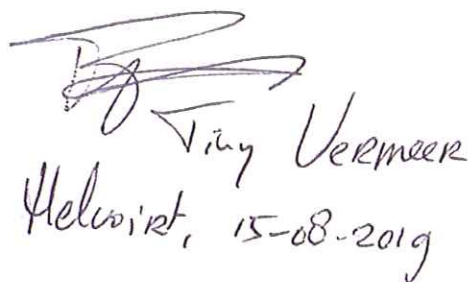 Tiny Vermeer
Helvoirt, 15-08-2019